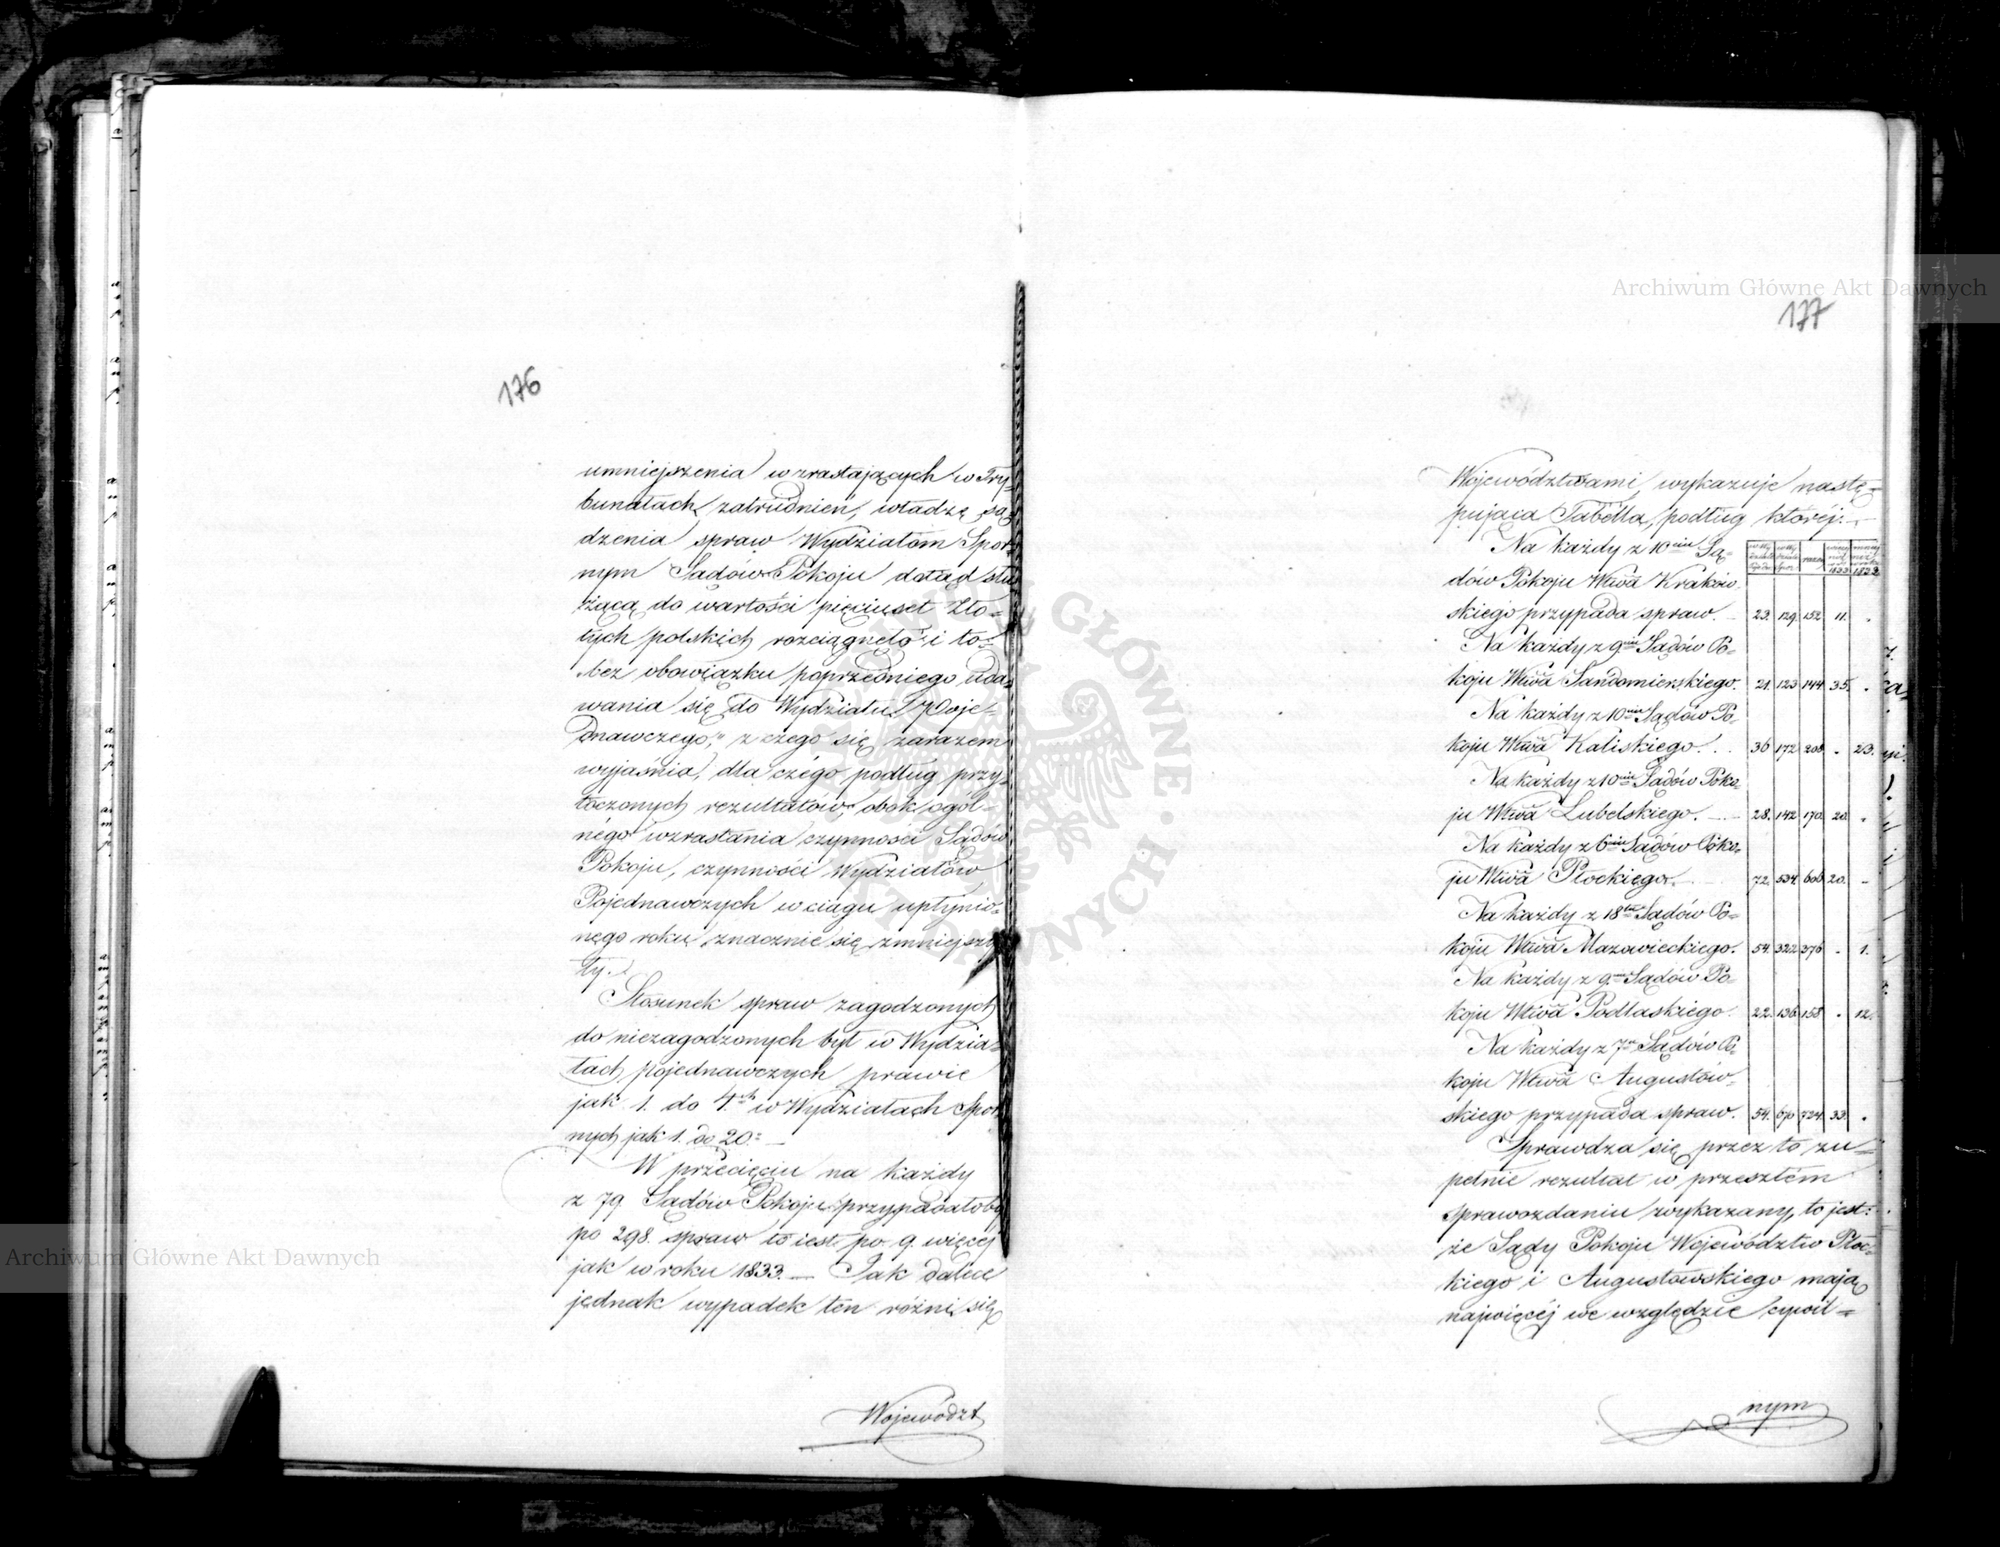 176
umniejszenia wzrastających w Try-
bunałach zatrudnień, władzę są-
dzenia spraw Wydziałom Spor-
nym Sądów Pokoju dotąd słu
żącą do wartości pięciuset Zło-
tych polskich rozciągnęło i to
bez obowiązku poprzedniego uda-
wania się do Wydziału Poje-
dnawczego," z czego się zarazem
wyjaśnia, dla czego podług przy-
toczonych rezultatów, obok ogól-
nego wzrastania czynności Sądów
Pokoju, czynności Wydziałów
Pojednawczych w ciągu upłynio-
nego roku znacznie się zmniejszy
ły.
Stosunek spraw zagodzonych
do niezagodzonych był w Wydzia-
łach pojednawczych prawie
jak 1. do 4. w Wydziałach Spor
nych jak 1. do 20.
W przecięciu na każdy
z 79. Sądów Pokoju przypadałoby
po 298. spraw to iest po 9. więcej
jak w roku 1833. — Jak dalece
jednak wypadek ten różni się
Województ
Archiwum Główne Akt Dawnych
Archiwum Główne Akt Dawnych
177
Województwami, wykazuje nastę-
pująca Tabella, podług której:
Na każdy z 10 Są-
dów Pokoju Wtwa Krakow-
1833 1833
skiego przypada spraw. 23. 129. 152. 11. .
Na każdy z 9 Sądów Po-
koju Wtwa Sandomierskiego. 21. 123. 144. 35. .
Na każdy z 10 Sądów Po-
koju Wtwa Kaliskiego. 36 172 208 . 23.
Na każdy z 10 Sądów Poko-
ju Wtwa Lubelskiego. 28. 142 170 20. .
Na każdy z 6 Sądów Poko-
ju Wtwa Płockiego. 72. 534 606 20. -
Na każdy z 18 Sądów Po-
koju Wtwa Mazowieckiego. 54. 322 376 . 1.
Na każdy z 9 Sądów Po-
koju Wtwa Podlaskiego. 22. 136 158 . 12.
Na każdy z 7 Sądów Po-
koju Wtwa Augustow-
skiego przypada spraw. 54. 670 724 33. .
Sprawdza się przez to zu-
pełnie rezultat w przeszłém
sprawozdaniu wykazany, to jest:
że Sądy Pokoju Województw Płoc-
kiego i Augustowskiego mają
najwięcej we względzie cywil-
nym
GŁÓWNE
DAWNYCH